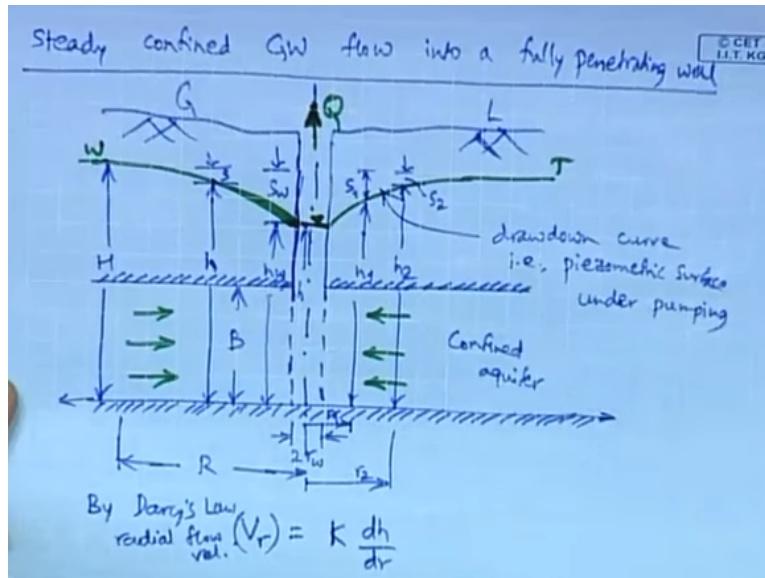 Steady confined GW flow into a fully penetrating well
© CET
I.I.T. KG
G
L
Q
W
T
s
Sw
S1
S2
H
h
hw
h1
h2
drawdown curve
i.e., piezometric surface
under pumping
B
Confined
aquifer
2rw
R
r2
By Darcy's Law
radial flow
vel. (Vr) = K dh
dr